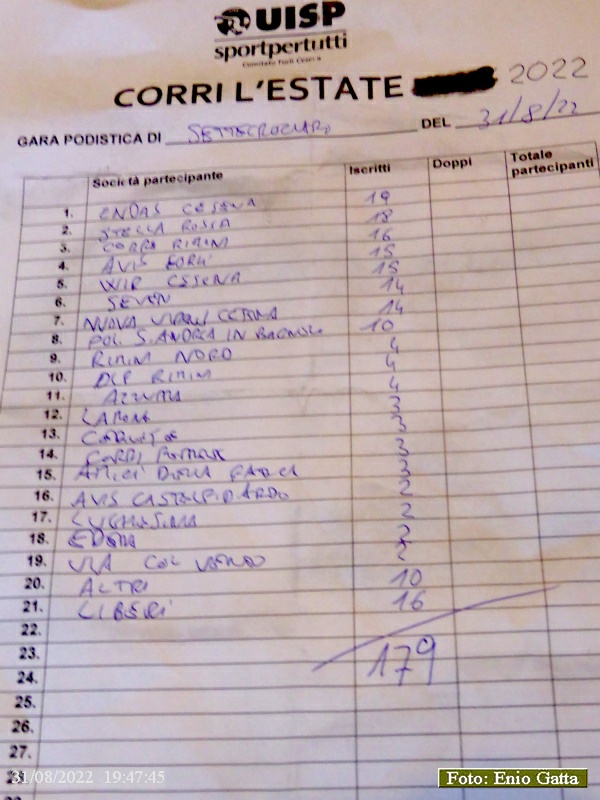 UISP
sportpertutti
Comitato Forlì Cesena
CORRI L'ESTATE 2022
GARA PODISTICA DI SETTECROCIARI DEL 31/8/22
Società partecipante Iscritti Doppi Totale partecipanti
1. ENDAS CESENA 19
2. STELLA ROSSA 18
3. CORRI RIMINI 16
4. AVIS FORLI' 15
5. WIP CESENA 15
6. SEVEN 14
7. NUOVA VIRTUS CESENA 14
8. POL. S. ANDREA IN BAGNOLO 10
9. RIMINI NORD 4
10. DLF RIMINI 4
11. AZZURRA 4
12. 3
13. 3
14. CORRI 3
15. AMICI DELLA 3
16. AVIS CASTELFIDARDO 2
17. LUGHESINA 2
18. EDERA 2
19. VIA COL VENTO 2
20. ALTRI 10
21. LIBERI 16
22.
23.
24. 179
25.
26.
27.
28.
31/08/2022 19:47:45
Foto: Enio Gatta